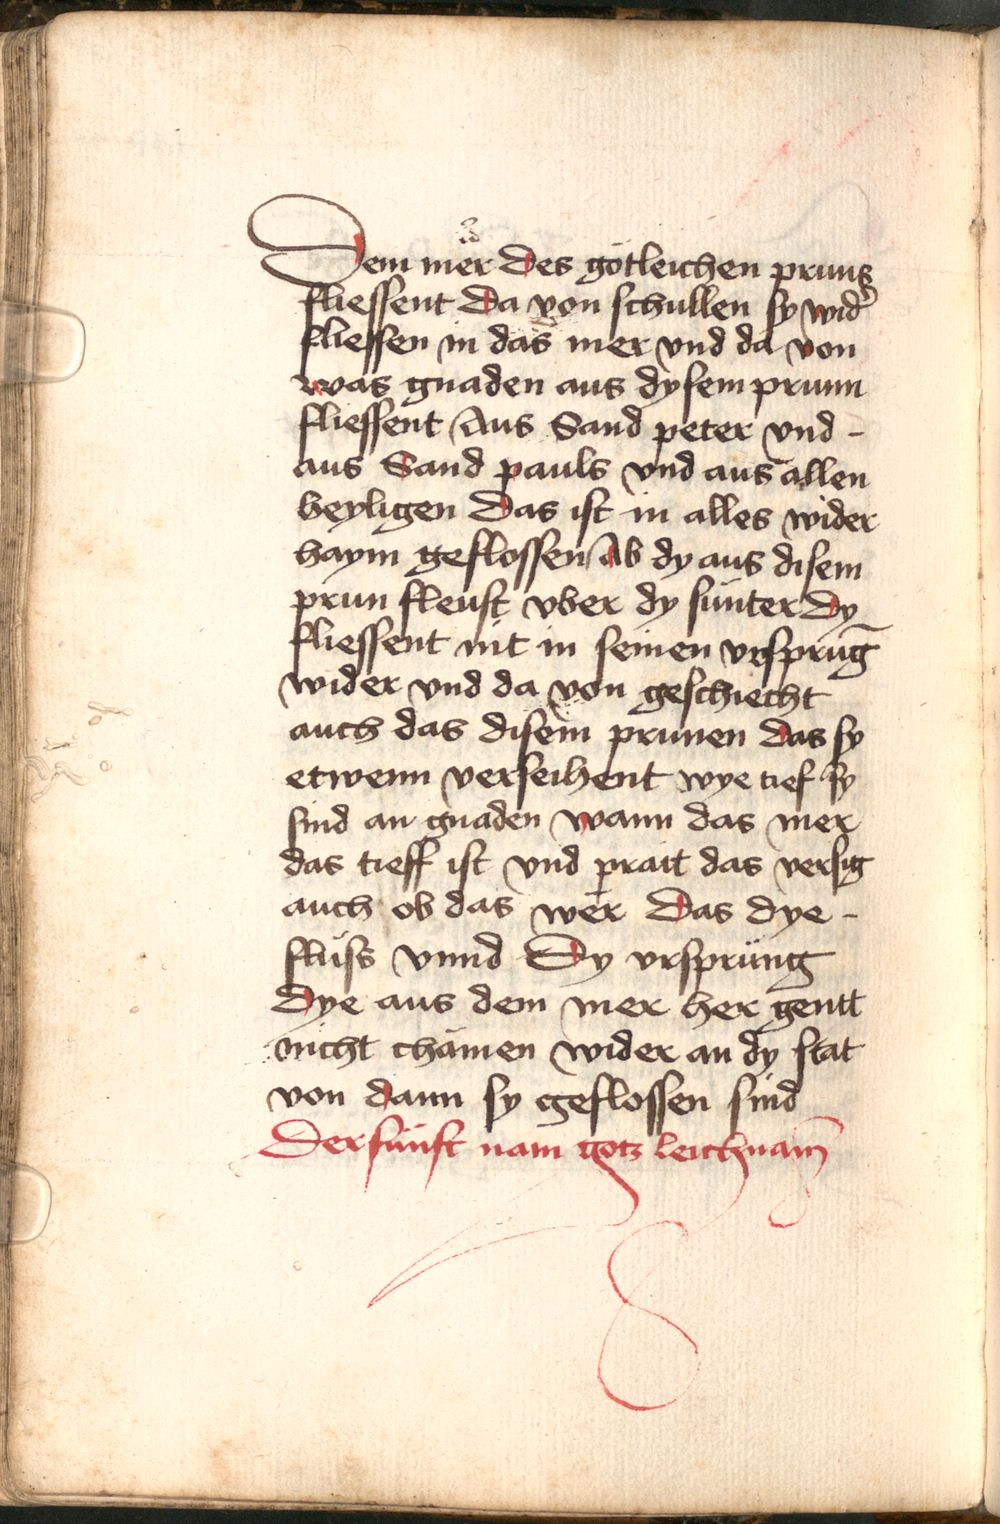 Dem mer des götleichen pruns
fliessent Da von schullen sy wid̉
fliessen in das mer vnd da von
was gnaden aus dysem prunn
fliessent Aus Sand peter vnd -
aus Sand pauls vnd aus allen
heyligen Das ist in alles wider
haym geflossen Ab dy aus disem
prun fleust vber dy sünter Dy
fliessent nit in seinen vrsprūg
wider vnd da von geschiecht
auch das disem prunen das sy
etwenn verseihent wye tief sy
sind an gnaden wann das mer
das tieff ist vnd prait das versig
auch ob das wer Das dye -
flüss vnnd Dy vrsprüng
Dye aus dem mer her gentt
nicht chämen wider an dy stat
von dann sy geflossen sind
Der fünft nam gotz leichnam̄